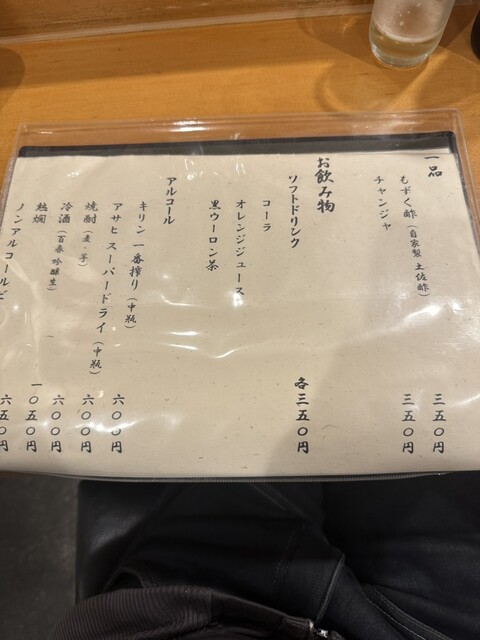 一品
もずく酢（自家製 土佐酢） 三五〇円
チャンジャ 三五〇円
お飲み物
ソフトドリンク 各三五〇円
コーラ
オレンジジュース
黒ウーロン茶
アルコール
キリン 一番搾り（中瓶） 六〇〇円
アサヒ スーパードライ（中瓶） 六〇〇円
焼酎（麦・芋） 六〇〇円
冷酒（百春 吟醸生） 一〇五〇円
熱燗 六五〇円
ノンアルコールビ